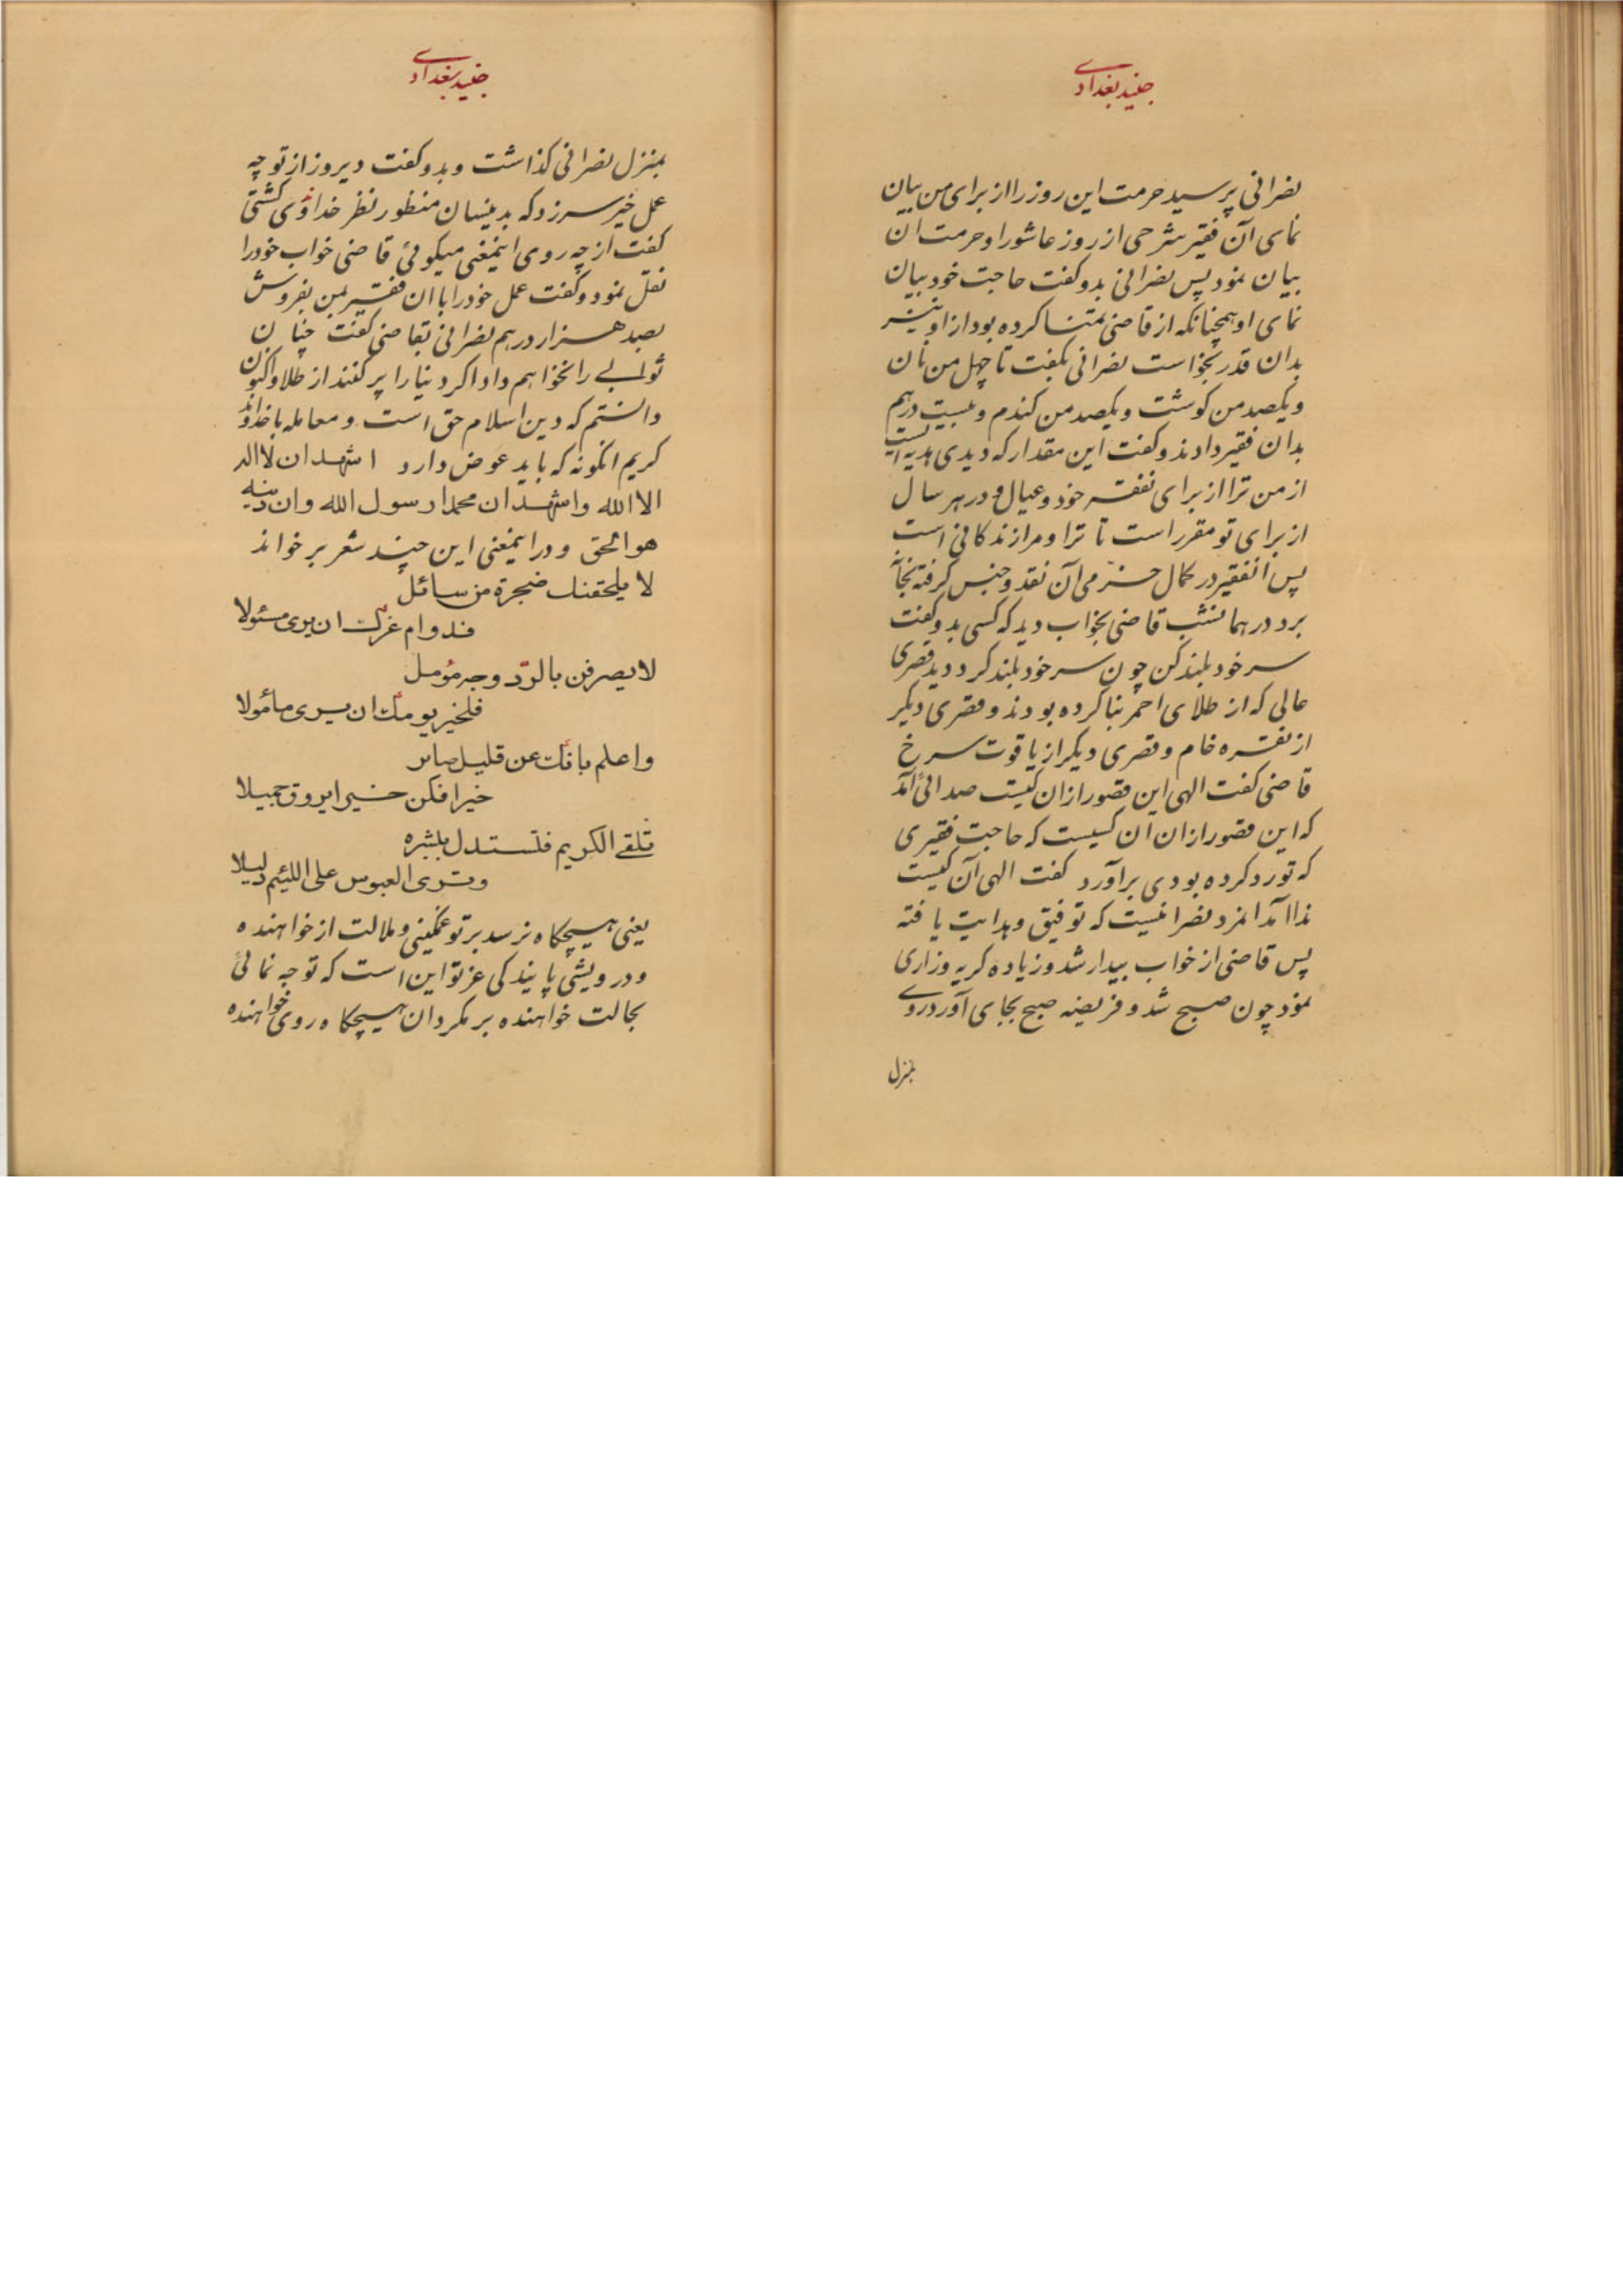 جنید بغدادی
نصرانی پرسید حرمت این روز را از برای من بیان
نمای آن فقیر شرحی از روز عاشورا و حرمت ان
بیان نمود پس نصرانی بدو گفت حاجت خود بیان
نمای او همچنانکه از قاضی تمنا کرده بود از او نیز
بدان قدر بخواست نصرانی بگفت تا چهل من نان
و یکصد من کوشت و یکصد من کندم و بیست درهم
بدان فقیر دادند و کفت این مقدار که دیدی هدیه ایست
از من ترا از برای نفقه خود و عیال و در هر سال
از برای تو مقرر است تا ترا و مرا زندکانی است
پس انفقیر در کمال خرمی آن نقد و جنس کرفته بخانه
برد در همانشب قاضی بخواب دید که کسی بدو کفت
سر خود بلند کن چون سر خود بلند کرد دید قصری
عالی که از طلای احمر بنا کرده بودند و قصری دیکر
از نقره خام و قصری دیکر از یاقوت سرخ
قاضی کفت الهی این قصور ازان کیست صدائی آمد
که این قصور ازان ان کسیست که حاجت فقیری
که تو رد کرده بودی برآورد کفت الهی آن کیست
ندا آمد انمرد نصرانیست که توفیق و هدایت یافته
پس قاضی از خواب بیدار شد و زیاده کریه و زاری
نمود چون صبح شد و فریضه صبح بجای آورد روی
بمنزل
جنید بغدادی
بمنزل نصرانی کذاشت و بدو کفت دیروز از تو چه
عمل خیر سرزد که بدینسان منظور نظر خداوندی کشتی
کفت از چه روی اینمعنی میکوئی قاضی خواب خود را
نقل نمود و کفت عمل خود را با ان فقیر بمن بفروش
بصد هزار درهم نصرانی بقاضی کفت چنان
ثوابی را نخواهم داد اکر دنیا را پر کنند از طلا و اکنون
دانستم که دین اسلام حق است و معامله با خداوند
کریم انکونه که باید عوض دارد اشهد ان لا اله
الا الله و اشهد ان محمدا رسول الله و ان دینه
هو الحق و در اینمعنی این چند شعر بر خواند
لا یلحقنك ضجرة من سائل
فدوام عزك ان یری مسئولا
لا یصرفن بالردّ وجه مؤمل
فلخیر یومك ان یری مأمولا
واعلم بانك عن قلیل صائر
خیرا فکن خیرا یروق جمیلا
تلقی الکریم فتستدل ببشره
وتری العبوس علی اللئیم دلیلا
یعنی هیچکاه نرسد بر تو غمکینی و ملالت از خواهنده
و درویشی پایندکی عز تو این است که توجه نمائی
بحالت خواهنده بر مکردان هیچکاه روی خواهنده